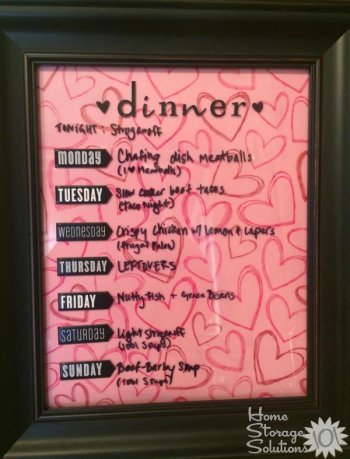 dinner
TONIGHT: Stroganoff
MONDAY Chafing dish Meatballs
(I ♥ Meatballs)
TUESDAY Slow cooker beef tacos
(Taco Night)
WEDNESDAY Crispy Chicken w/ Lemon & Capers
(Frugal Paleo)
THURSDAY LEFTOVERS
FRIDAY Nutty Fish + Green Beans
SATURDAY Light Stroganoff
(1001 Soups)
SUNDAY Beef-Barley Soup
(1001 Soups)
Home
Storage
Solutions
101